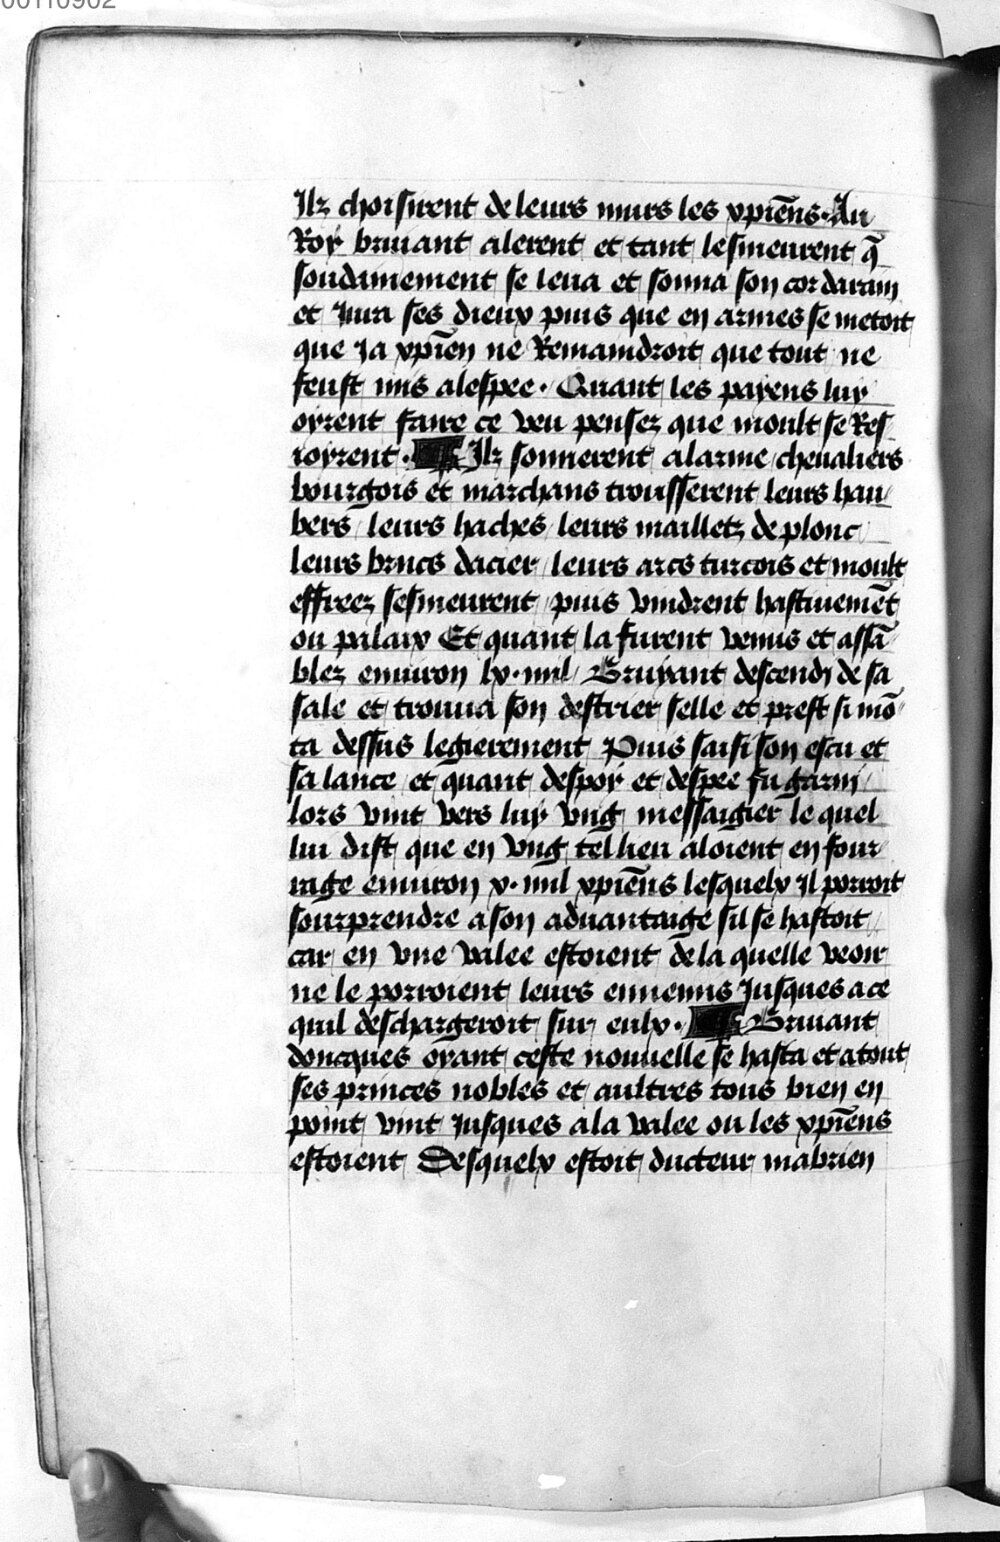 00110902
Ilz choisirent de leurs murs les xpiēns. Au
Roy bruiant alerent et tant lesmeurent q̄
soudainement se leua et sonna son cor darain
et Iura ses dieux puis que en armes se metoit
que Ia xpiēn ne Remaindroit que tout ne
feust mis alespee. Quant les payens luy
oyrent faire ce veu pensez que moult se Res
ioyrent. Ilz sonnerent alarme cheualiers
bourgois et marchans trousserent leurs hau
bers leurs haches leurs mailletz de plonc
leurs brucs dacier leurs arcs turcois et moult
effreez sesmeurent puis vindrent hastiuemēt
ou palaix Et quant la furent venus et assā
blez enuiron lx. mil Bruyant descendy de sa
sale et trouua son destrier selle et prest si mō
ta dessus legierement Puis saisi son escu et
sa lance et quant despoy et despee fu garny
lors vint vers luy vng messaigier le quel
lui dist que en vng tel lieu aloient en four
rage enuiron x. mil xpiēns lesquelx Il porroit
sourprendre a son aduantaige sil se hastoit
car en vne valee estoient de la quelle veoir
ne le porroient leurs ennemis Jusques a ce
quil deschargeroit sur eulx. Bruiant
doncques oyant ceste nouuelle se hasta et atout
ses princes nobles et aultres tous bien en
point vint Jusques a la valee ou les xpiēns
estoient Desquelx estoit ducteur mabrien